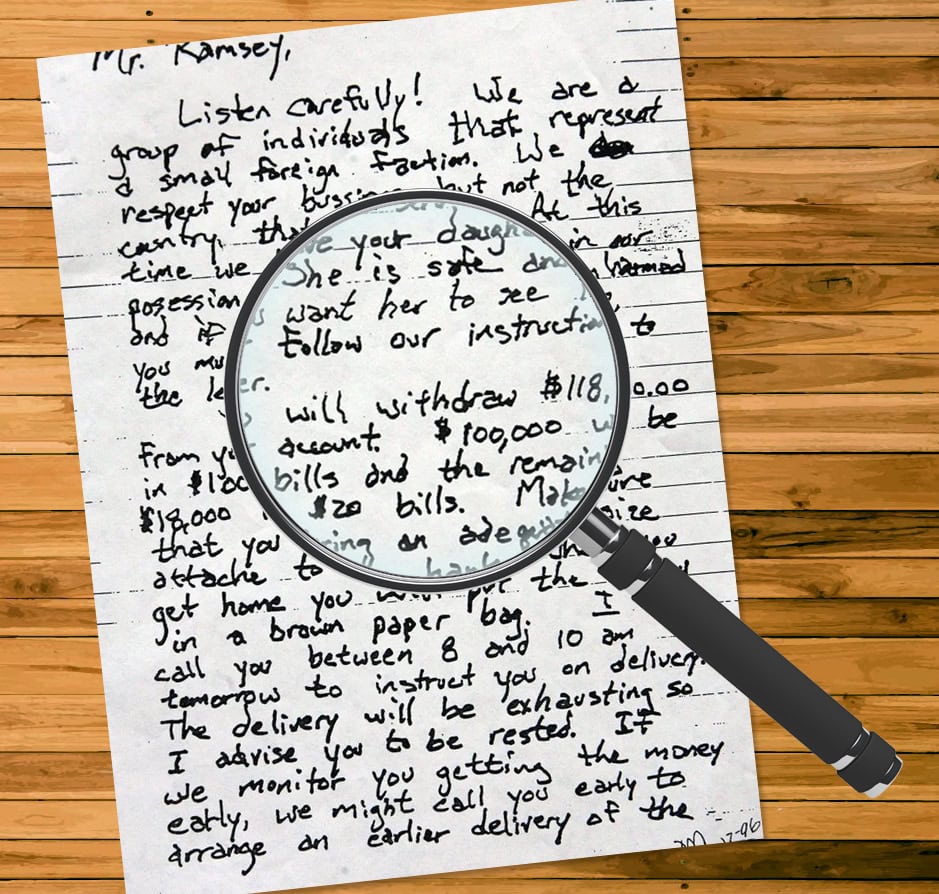 Mr. Ramsey,
Listen carefully! We are a
group of individuals that represent
a small foreign faction. We
respect your but not the
country At this
time we your in our
posession She is safe and harmed
and if want her to see
you Follow our to
the
will withdraw
from account. $100,000 be
in $100 bills and the
$18,000 $20 bills. Make sure
that you an adequate size
attache to
get home you will put the
in a brown paper bag. I
call you between 8 and 10 am
tomorrow to instruct you on delivery.
The delivery will be exhausting so
I advise you to be rested. If
we monitor you getting the money
early, we might call you early to
arrange an earlier delivery of the